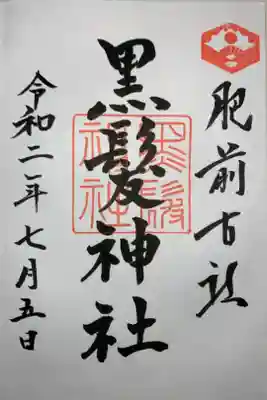 肥前古社
黒髪神社
令和二年七月五日
黒髪神社